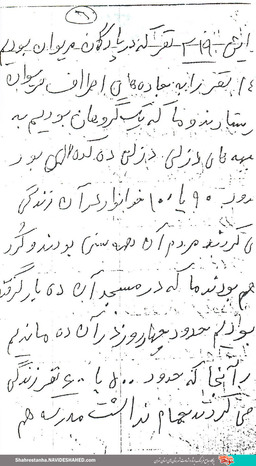 ۶
این ۱۹-۳۰ نفر که در پادگان مریوان بودیم
۱۵ نفر را به جاده های اطراف مریوان
فرستادند و ما که یک گروهان بودیم به
جبهه های دزلی دزلی ده کده ای بود
حدود ۹۰ یا ۱۰۰ خانوار در آن زندگی
می کردند مردم آن همه سنی بودند و کُرد
هم بودند ما که در مسجد آن ده پایگرفته
بودیم حدود چهار روز در آن ده ماندیم
در آنجا که حدود ۵۰۰ یا ۶۰۰ نفر زندگی
می کردند حمام نداشت مدرسه هم
Shahrestanha.NAVIDESHAHED.com